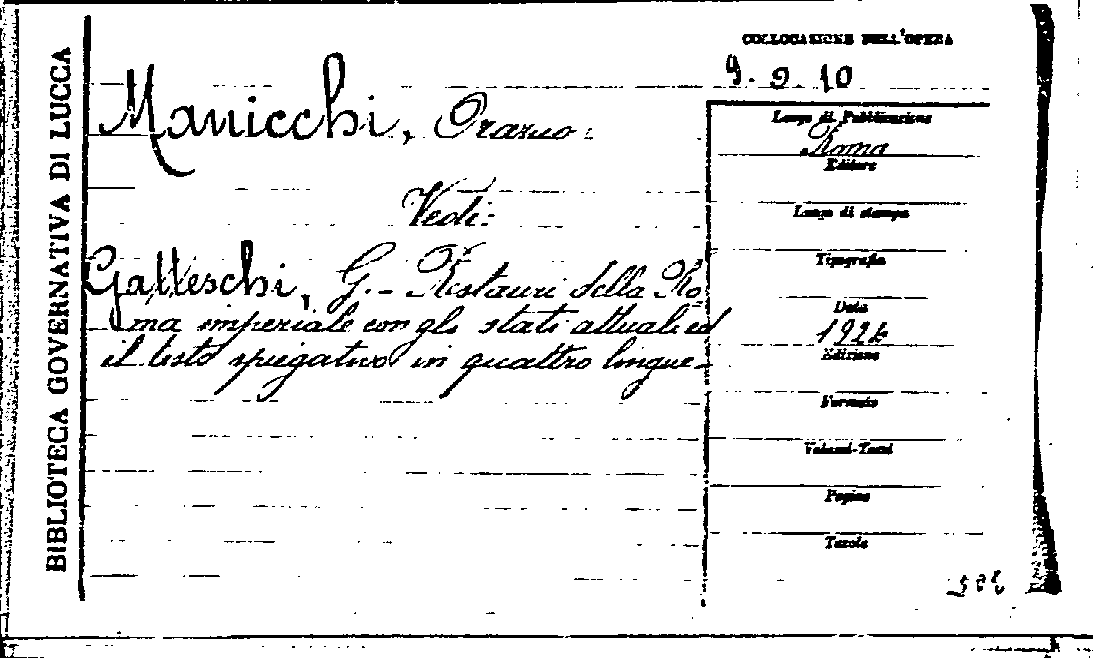 BIBLIOTECA GOVERNATIVA DI LUCCA
COLLOCAZIONE DELL'OPERA
9. 9. 10
Manicchi, Orazio:
Vedi:
Gatteschi, G. - Restauri della Ro
ma imperiale con gli stati attuali ed
il testo spiegativo in quattro lingue -
Luogo di Pubblicazione
Roma
Editore
Luogo di stampa
Tipografia
Data
1924
Edizione
Formato
Volumi-Tomi
Pagine
Tavole